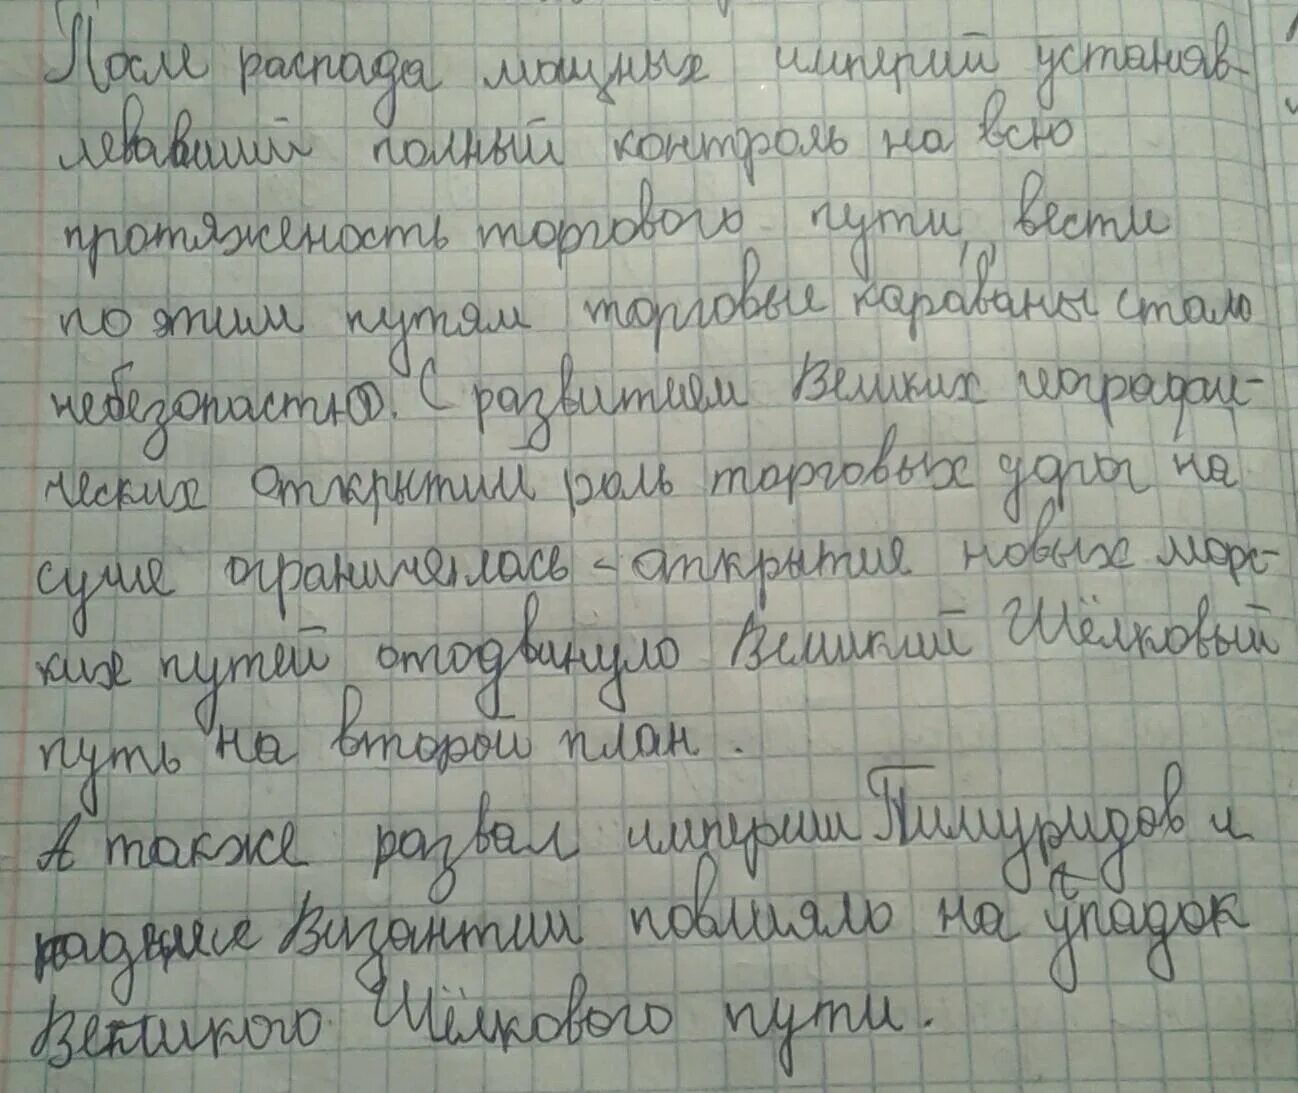 После распада мощных империй устанав-
левавший полный контроль на всю
протяженость торгового пути, вести
по этим путям торговые караваны стало
небезопастно. С развитием Великих географи-
ческих открытии роль торговых дорог на
суше ограничелась - открытие новых морс-
ких путей отодвинуло Великий Шёлковый
путь на второй план.
А также развал империи Тимуридов и
падение Византии повлияло на упадок
Великого Шёлкового пути.